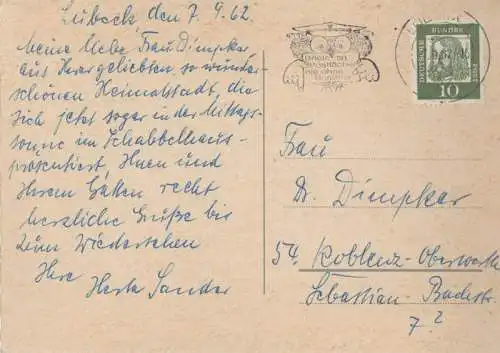 Lübeck, den 7. 9. 62.
Meine liebe Frau Dimpker
aus Ihrer geliebten so wunder
schönen Heimatstadt, die
sich jetzt sogar in der Mittags-
sonne im Schabbelhaus
präsentiert, Ihnen und
Ihrem Gatten recht
herzliche Grüße bis
zum Wiedersehen
Ihre Herta Sander
DEUTSCHE
BUNDES
POST
10
Frau
Dr. Dimpker
54 Koblenz-Oberwerth
Sebastian-Bachstr
7?